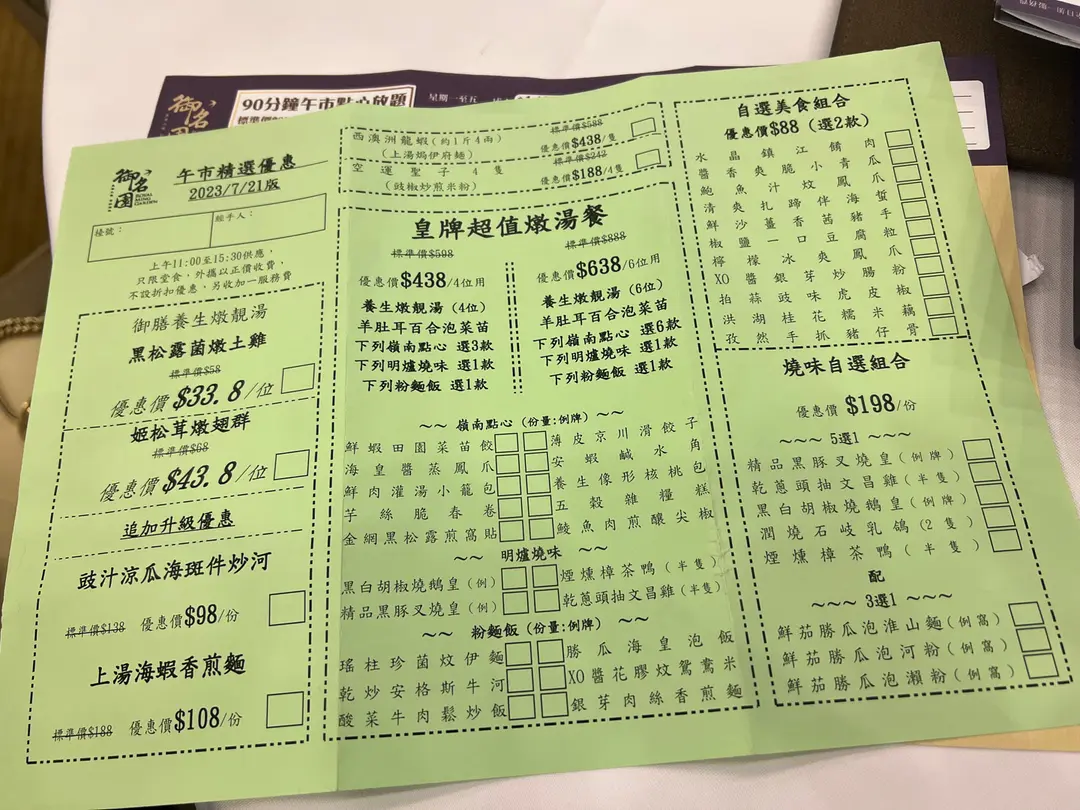 御名園
90分鐘午市點心放題
星期一至五
御名園
ROYAL
MING
GARDEN
午市精選優惠
2023/7/21版
檯號：
經手人：
上午11:00至15:30供應，
只限堂食，外攜以正價收費，
不設折扣優惠、另收加一服務費
御膳養生燉靚湯
黑松露菌燉土雞
標準價$58
優惠價$33.8/位
姬松茸燉翅群
標準價$68
優惠價$43.8/位
追加升級優惠
豉汁涼瓜海斑件炒河
標準價$138 優惠價$98/份
上湯海蝦香煎麵
標準價$188 優惠價$108/份
西澳洲龍蝦(約1斤4兩)
(上湯焗伊府麵)
標準價$588
優惠價$438/隻
空運聖子4隻
(豉椒炒煎米粉)
標準價$242
優惠價$188/4隻
皇牌超值燉湯餐
標準價$598
優惠價$438/4位用
養生燉靚湯 (4位)
羊肚耳百合泡菜苗
下列嶺南點心 選3款
下列明爐燒味 選1款
下列粉麵飯 選1款
標準價$888
優惠價$638/6位用
養生燉靚湯 (6位)
羊肚耳百合泡菜苗
下列嶺南點心 選6款
下列明爐燒味 選1款
下列粉麵飯 選1款
~~ 嶺南點心 (份量:例牌) ~~
鮮蝦田園菜苗餃 薄皮京川滑餃子
海皇醬蒸鳳爪 安蝦鹹水角
鮮肉灌湯小籠包 養生像形核桃包
芋絲脆春卷 五穀雜糧糕
金網黑松露煎窩貼 鯪魚肉煎釀尖椒
~~ 明爐燒味 ~~
黑白胡椒燒鵝皇(例) 煙燻樟茶鴨(半隻)
精品黑豚叉燒皇(例) 乾蔥頭抽文昌雞(半隻)
~~ 粉麵飯 (份量:例牌) ~~
瑤柱珍菌炆伊麵 勝瓜海皇泡飯
乾炒安格斯牛河 XO醬花膠炆鴛鴦米
酸菜牛肉鬆炒飯 銀芽肉絲香煎麵
自選美食組合
優惠價$88 (選2款)
水晶鎮江餚肉
醬香爽脆小青瓜
鮑魚汁炆鳳爪
清爽扎蹄伴海蜇
鮮沙薑香茜豬手
椒鹽一口豆腐粒
檸檬冰爽鳳爪
XO醬銀芽炒腸粉
拍蒜豉味虎皮椒
洪湖桂花糯米藕
孜然手抓豬仔骨
燒味自選組合
優惠價 $198/份
~~~ 5選1 ~~~
精品黑豚叉燒皇(例牌)
乾蔥頭抽文昌雞(半隻)
黑白胡椒燒鵝皇(例牌)
潤燒石岐乳鴿(2隻)
煙燻樟茶鴨(半隻)
配
~~~ 3選1 ~~~
鮮茄勝瓜泡淮山麵(例窩)
鮮茄勝瓜泡河粉(例窩)
鮮茄勝瓜泡瀨粉(例窩)